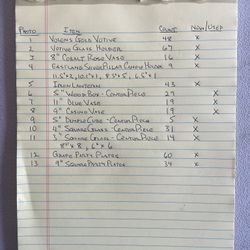 PHOTO ITEM COUNT NEW/USED
1 VOLENS GOLD VOTIVE 48 X
2 VOTIVE GLASS HOLDER 67 X
3 8" COBALT ROSE VASE 16 X
4 EASTLAND SILVER PILLAR CANDLE HOLDER 9 X
11.5"x2, 10.1"x1, 8.5"x5, 6.5"x1
5 IRON LANTERN 43 X
6 5" WOOD BOX - CENTERPIECE 29 X
7 11" BLUE VASE 19 X
8 9" CASINO VASE 19 X
9 5" DIMPLE CUBE - CENTERPIECE 5 X
10 4" SQUARE GLASS - CENTERPIECE 31 X
11 3" SQUARE GLASS - CENTERPIECE 14 X
8"x8, 6"x6
12 GRAPE PARTY PLATES 60 X
13 9" SQUARE PARTY PLATES 34 X